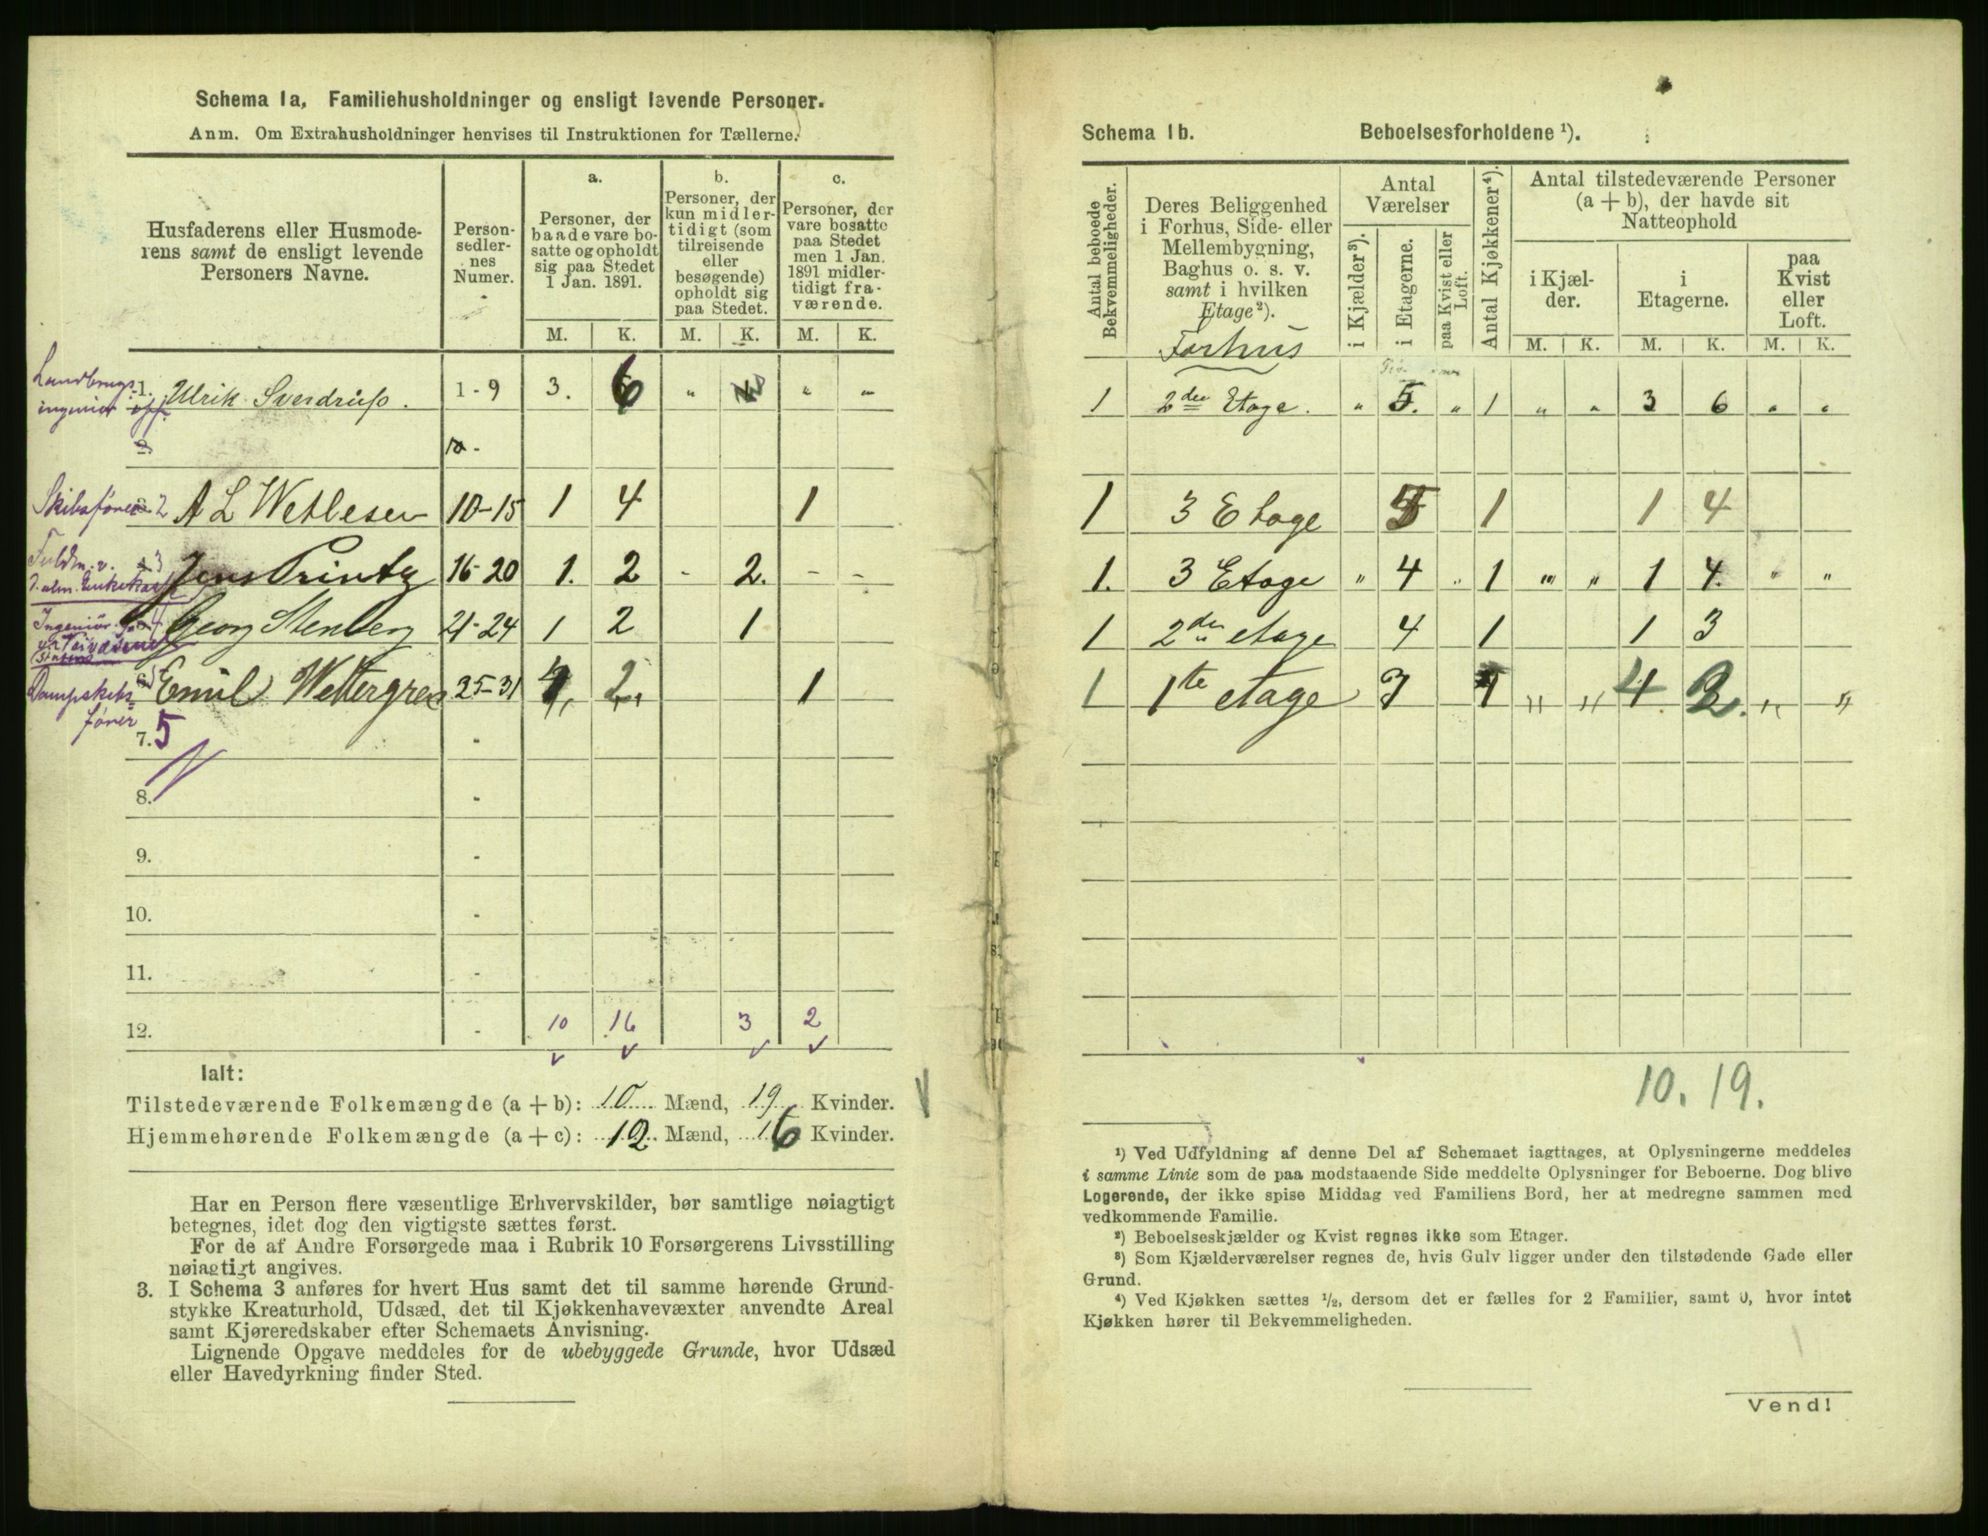 Schema 1a, Familiehusholdninger og ensligt levende Personer.
Anm. Om Extrahusholdninger henvises til Instruktionen for Tællerne.
Husfaderens eller Husmode-
rens samt de ensligt levende
Personers Navne.
Person-
sedler-
nes
Numer.
a.
Personer, der
baade vare bo-
satte og opholdt
sig paa Stedet
1 Jan. 1891.
b.
Personer, der
kun midler-
tidigt (som
tilreisende
eller
besøgende)
opholdt sig
paa Stedet.
c.
Personer, der
vare bosatte
paa Stedet
men 1 Jan.
1891 midler-
tidigt fra-
værende.
M. K. M. K. M. K.
Landbrugs-
ingeniør
1. Ulrik Sverdrup. 1-9 3. 6 " " "
2. 10-
Skibsfører 2 A L Wetlesen 10-15 1 4 1
Fuldm. v.
3 Jens Printz 16-20 1. 2 - 2. - -
Ingeniør
4 Georg Stenberg 21-24 1 2 1
Dampskibs-
fører
Emil Wettergren 25-31 4, 2,, 1
7. 5
8. -
9. -
10. -
11. -
12. - 10 16 3 2
Ialt:
Tilstedeværende Folkemængde (a + b): 10 Mænd, 19 Kvinder.
Hjemmehørende Folkemængde (a + c): 12 Mænd, 16 Kvinder.
Har en Person flere væsentlige Erhvervskilder, bør samtlige nøiagtigt
betegnes, idet dog den vigtigste sættes først.
For de af Andre Forsørgede maa i Rubrik 10 Forsørgerens Livsstilling
nøiagtigt angives.
3. I Schema 3 anføres for hvert Hus samt det til samme hørende Grund-
stykke Kreaturhold, Udsæd, det til Kjøkkenhavevæxter anvendte Areal
samt Kjøreredskaber efter Schemaets Anvisning.
Lignende Opgave meddeles for de ubebyggede Grunde, hvor Udsæd
eller Havedyrkning finder Sted.
Schema 1b. Beboelsesforholdene ¹).
Antal beboede
Bekvemmeligheder.
Deres Beliggenhed
i Forhus, Side- eller
Mellembygning,
Baghus o. s. v.
samt i hvilken
Etage²).
Forhus
Antal
Værelser
i Kjælder³).
i Etagerne.
paa Kvist eller
Loft.
Antal Kjøkkener⁴).
Antal tilstedeværende Personer
(a + b), der havde sit
Natteophold
i Kjæl-
der.
i
Etagerne.
paa
Kvist
eller
Loft.
M. K. M. K. M. K.
1 2den Etage. " 5. " 1 " " 3 6 " "
1 3 Etage 5 1 1 4
1. 3 Etage " 4 " 1 " " 1 4. " "
1 2den etage 4 1 1 3
1 1te etage 7 1 " " 4 2. " "
10. 19.
¹) Ved Udfyldning af denne Del af Schemaet iagttages, at Oplysningerne meddeles
i samme Linie som de paa modstaaende Side meddelte Oplysninger for Beboerne. Dog blive
Logerende, der ikke spise Middag ved Familiens Bord, her at medregne sammen med
vedkommende Familie.
²) Beboelseskjælder og Kvist regnes ikke som Etager.
³) Som Kjælderværelser regnes de, hvis Gulv ligger under den tilstødende Gade eller
Grund.
⁴) Ved Kjøkken sættes ½, dersom det er fælles for 2 Familier, samt 0, hvor intet
Kjøkken hører til Bekvemmeligheden.
Vend!